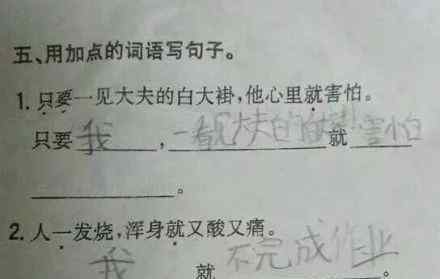 五、用加点的词语写句子。
1. 只要一见大夫的白大褂,他心里就害怕。
只要我,一看见大夫的白大褂就害怕
。
2. 人一发烧,浑身就又酸又痛。
我就不完成作业。